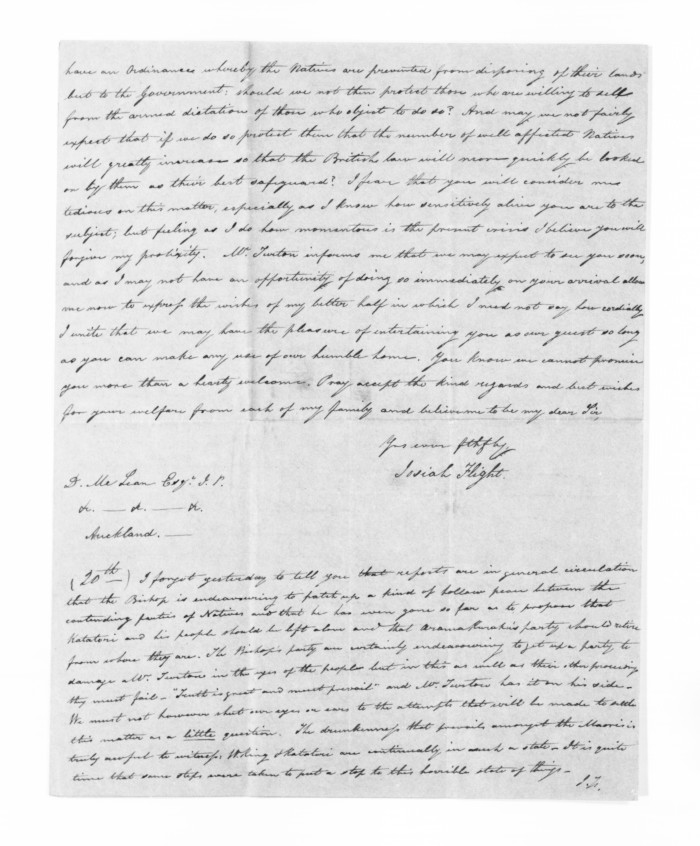 have an Ordinances whereby the Natives are prevented from disposing of their lands
but to the Government; should we not then protect those who are willing to sell
from the armed dictation of those who object to do so? And may we not fairly
expect that if we do so protect them that the number of well affected Natives
will greatly increase so that the British law will more quickly be looked
on by them as their best safeguard? I fear that you will consider me
tedious on this matter, especially as I know how sensitively alive you are to the
subject; but feeling as I do how momentous is the present crisis I believe you will
forgive my prolixity. Mr. Turton informs me that we may expect to see you soon,
and as I may not have an opportunity of doing so immediately on your arrival allow
me now to express the wishes of my better half in which I need not say how cordially
I unite that we may have the pleasure of entertaining you as our guest so long
as you can make any use of our humble home. You know we cannot promise
you more than a hearty welcome. Pray accept the kind regards and best wishes
for your welfare from each of my family and believe me to be my dear Sir,
Yrs ever fthfly
Josiah Flight.
D. Mc Lean Esqr. J. P.
&. — &. — &.
Auckland. —
(20th) I forgot yesterday to tell you that reports are in general circulation
that the Bishop is endeavouring to patch up a kind of hollow peace between the
contending parties of Natives and that he has even gone so far as to propose that
Katatori and his people should be left alone and that Arama Karaka's party should retire
from where they are. The Bishop's party are certainly endeavouring to get up a party to
damage Mr. Turton in the eyes of the people but in this as well as their other proceedings
they must fail - "Truth is great and must prevail" and Mr. Turton has it on his side -
We must not however shut our eyes or ears to the attempts that will be made to settle
this matter as a little question. The drunkenness that prevails amongst the Maoris is
truly awful to witness Katatori are continually in such a state - It is quite
time that some steps were taken to put a stop to this horrible state of things -
J.F.